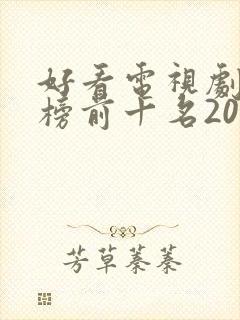 好看電視劇
榜前十名20
芳草萋萋